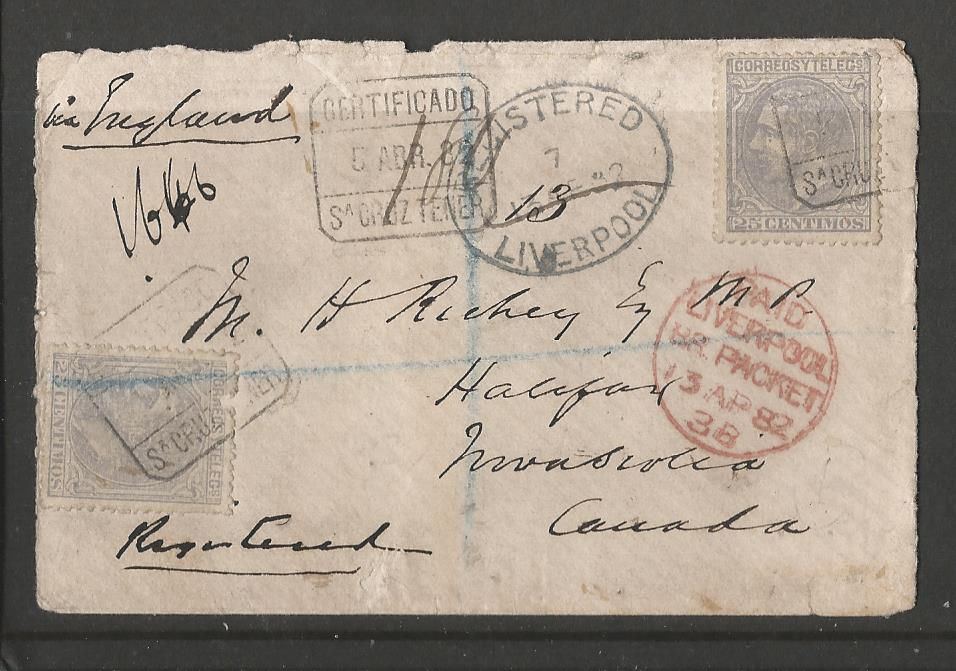 via England
1646
CERTIFICADO
5 ABR. 82
Sᴬ CRUZ TENER
REGISTERED
7
82
LIVERPOOL
13
CORREOS Y TELEGS
25 CENTIMOS
Sᴬ CRU
M. H Richey Esq M P
Halifax
Novascotia
Canada
PAID
LIVERPOOL
BR. PACKET
13 AP 82
3B
CORREOS Y TELEGS
25 CENTIMOS
Sᴬ CRU NER
Registered